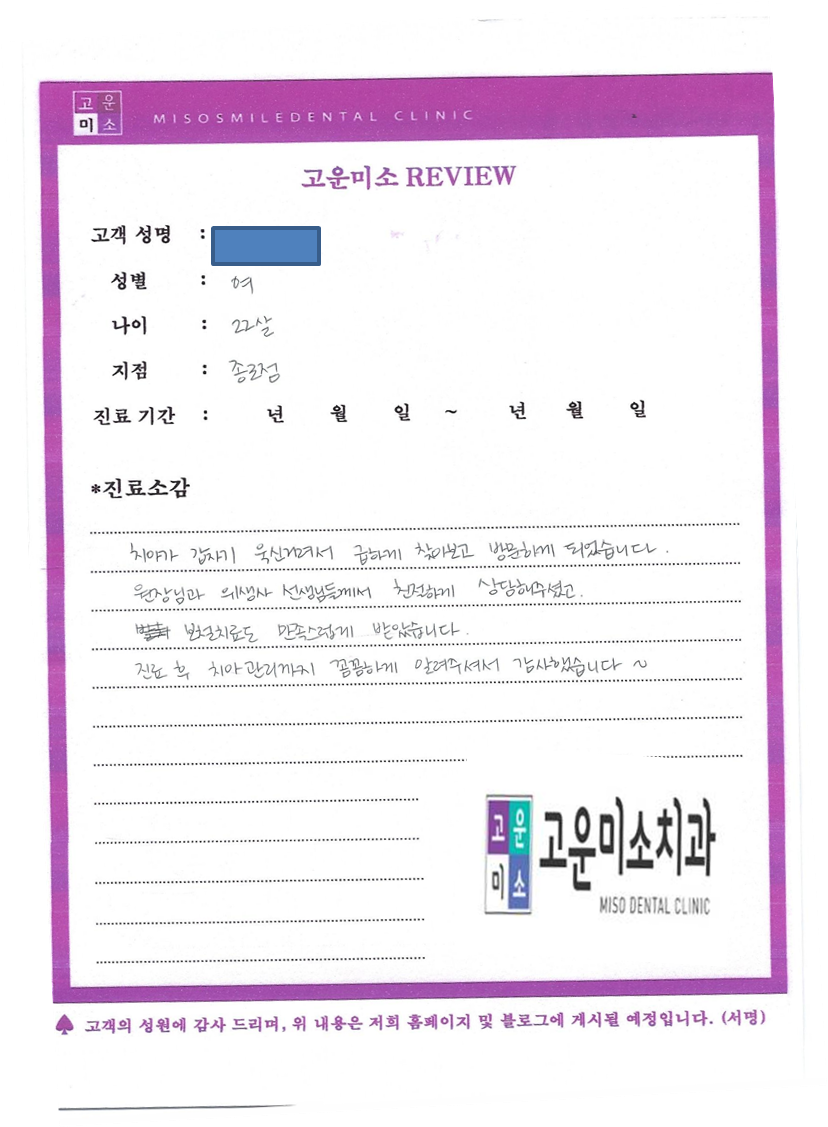 고운
미소
MISOSMILEDENTAL CLINIC
고운미소 REVIEW
고객 성명 :
성별 : 여
나이 : 22살
지점 : 종로점
진료 기간 : 년 월 일 ~ 년 월 일
*진료소감
치아가 갑자기 욱신거려서 급하게 찾아보고 방문하게 되었습니다.
원장님과 위생사 선생님들께서 친절하게 상담해주셨고.
보철치료도 만족스럽게 받았습니다.
진료 후 치아관리까지 꼼꼼하게 알려주셔서 감사했습니다~
고운
미소
고운미소치과
MISO DENTAL CLINIC
♠ 고객의 성원에 감사 드리며, 위 내용은 저희 홈페이지 및 블로그에 게시될 예정입니다. (서명)